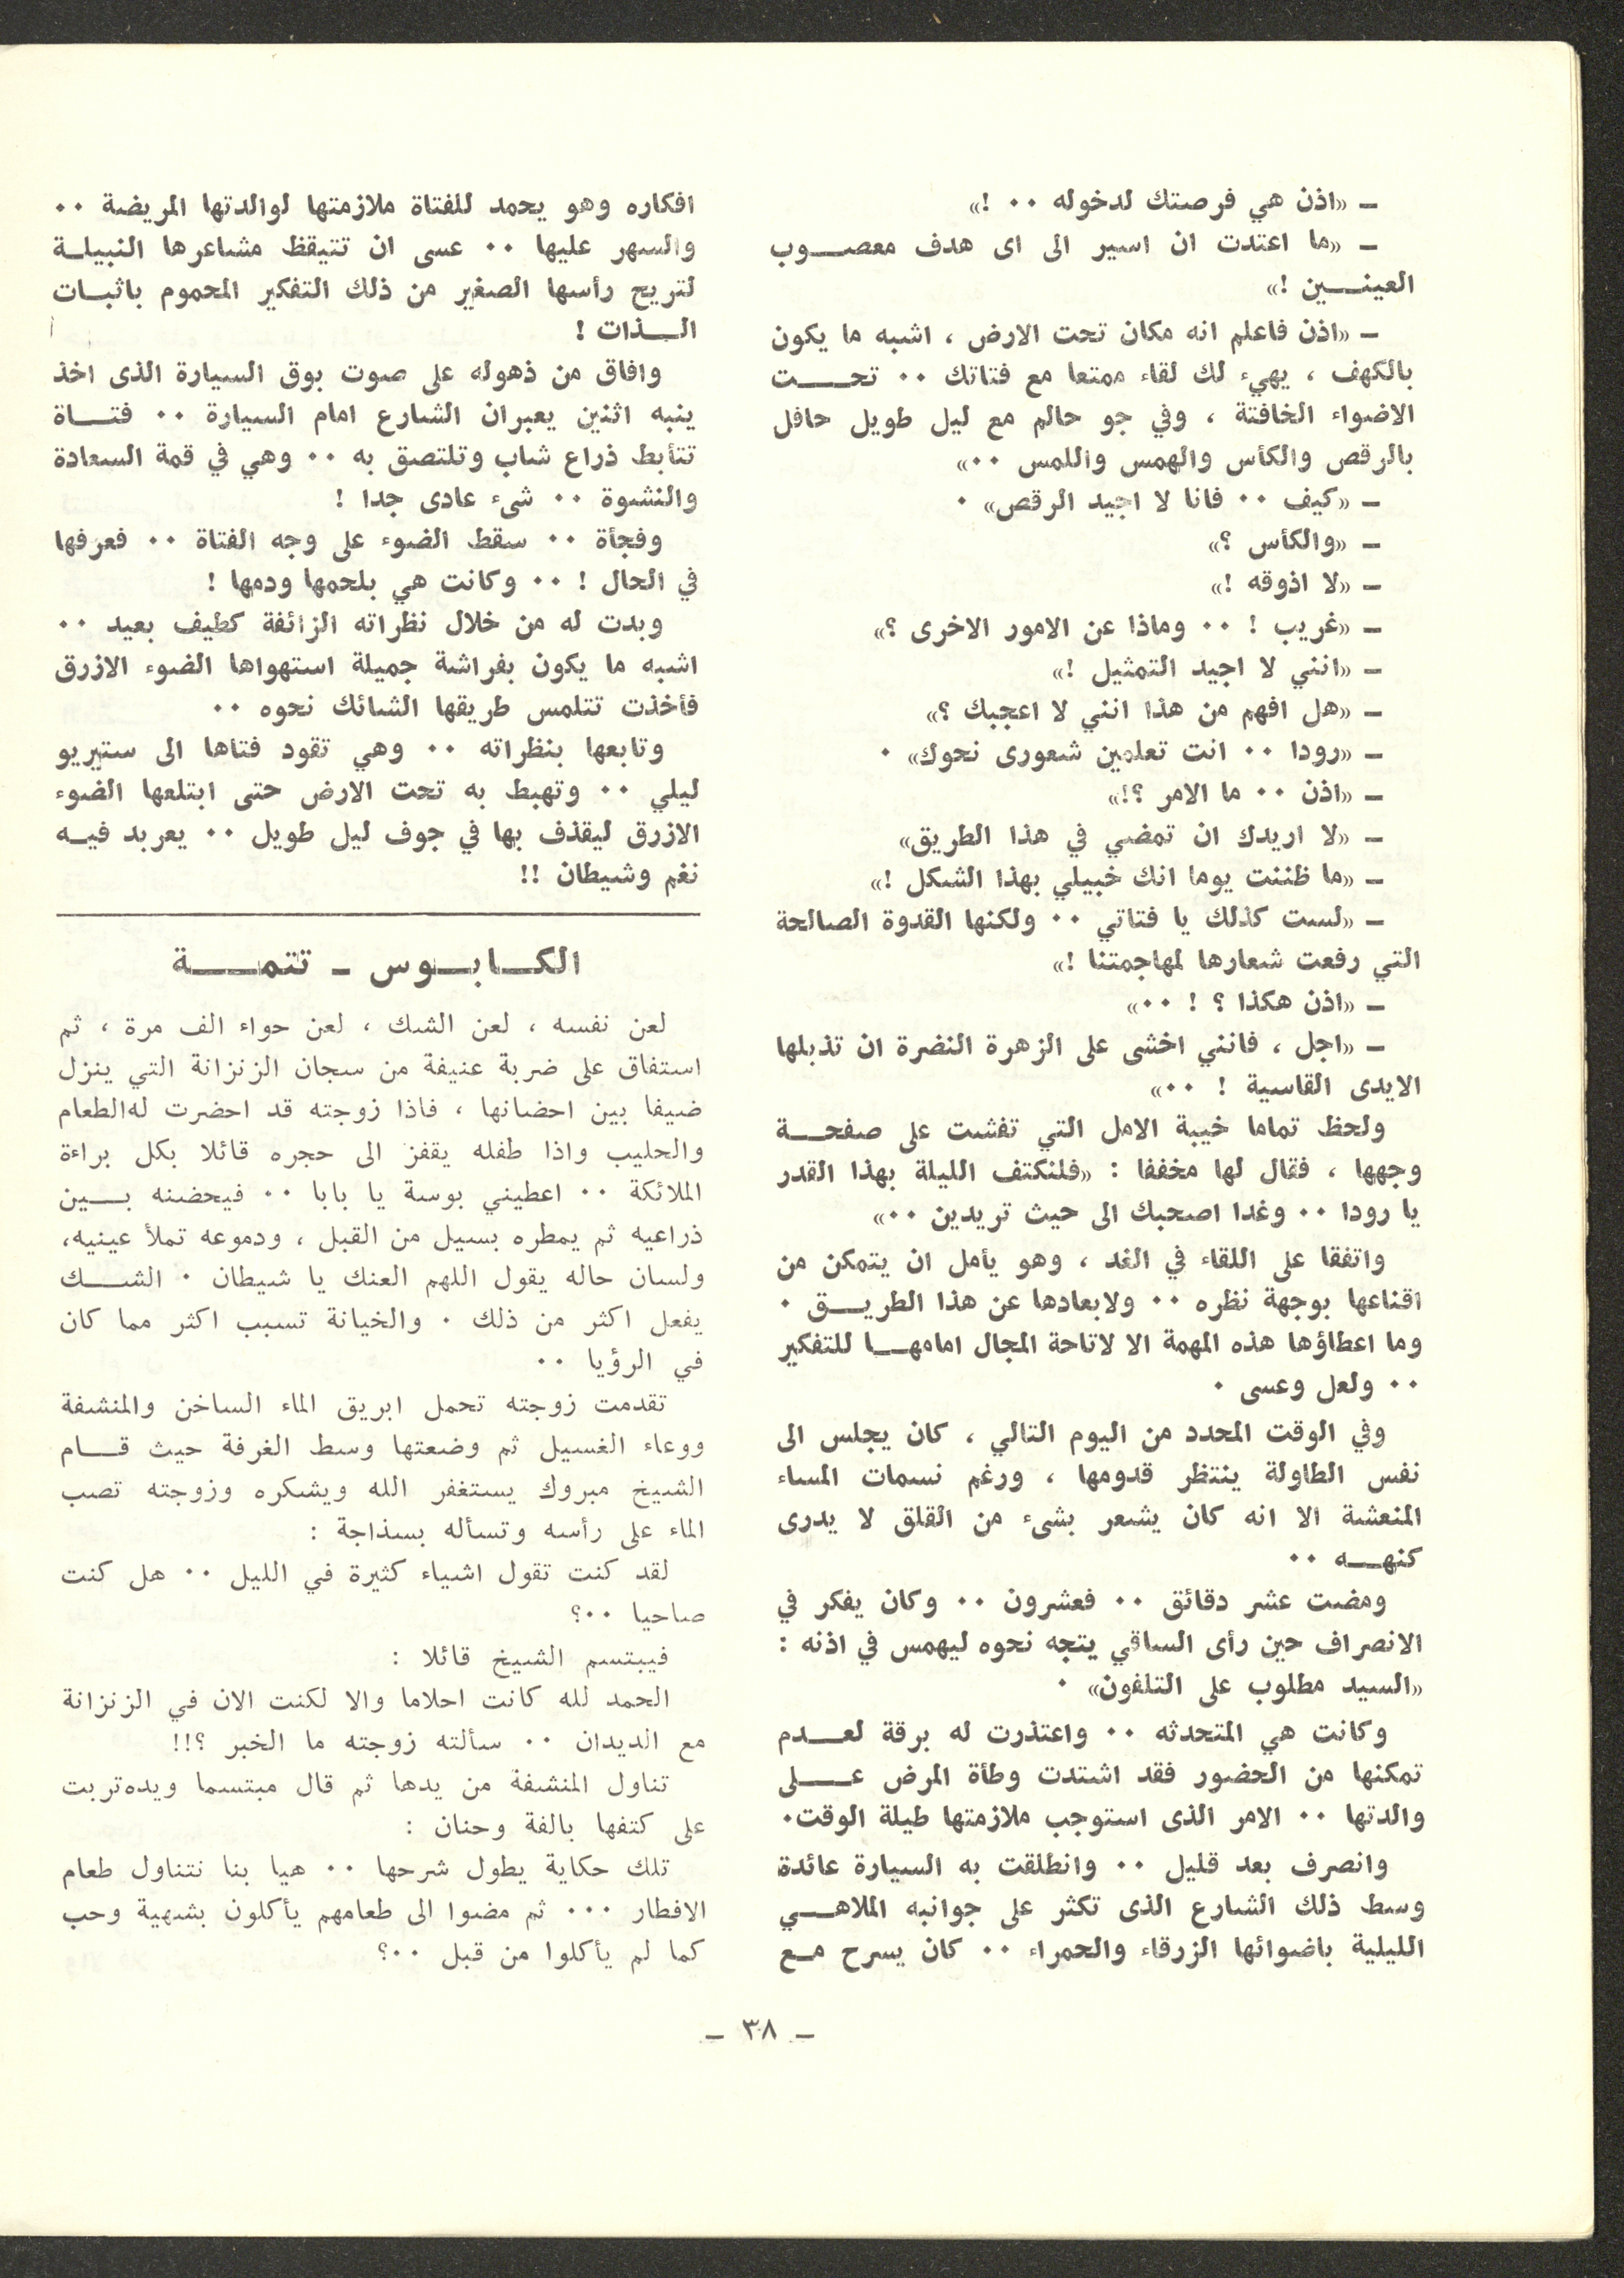 ــ «اذن هي فرصتك لدخوله ٠٠ !»
ــ «ما اعتدت ان اسير الى اى هدف معصوب
العينين !»
ــ «اذن فاعلم انه مكان تحت الارض ، اشبه ما يكون
بالكهف ، يهيء لك لقاء ممتعا مع فتاتك ٠٠ تحت
الاضواء الخافتة ، وفي جو حالم مع ليل طويل حافل
بالرقص والكأس والهمس واللمس ٠٠»
ــ «كيف ٠٠ فانا لا اجيد الرقص» ٠
ــ «والكأس ؟»
ــ «لا اذوقه !»
ــ «غريب ! ٠٠ وماذا عن الامور الاخرى ؟»
ــ «انني لا اجيد التمثيل !»
ــ «هل افهم من هذا انني لا اعجبك ؟»
ــ «رودا ٠٠ انت تعلمين شعورى نحوك» ٠
ــ «اذن ٠٠ ما الامر ؟!»
ــ «لا اريدك ان تمضي في هذا الطريق»
ــ «ما ظننت يوما انك خبيلي بهذا الشكل !»
ــ «لست كذلك يا فتاتي ٠٠ ولكنها القدوة الصالحة
التي رفعت شعارها لمهاجمتنا !»
ــ «اذن هكذا ؟ ! ٠٠»
ــ «اجل ، فانني اخشى على الزهرة النضرة ان تذبلها
الايدى القاسية ! ٠٠»
ولحظ تماما خيبة الامل التي تفشت على صفحة
وجهها ، فقال لها مخففا : «فلنكتف الليلة بهذا القدر
يا رودا ٠٠ وغدا اصحبك الى حيث تريدين ٠٠»
واتفقا على اللقاء في الغد ، وهو يأمل ان يتمكن من
اقناعها بوجهة نظره ٠٠ ولابعادها عن هذا الطريق ٠
وما اعطاؤها هذه المهمة الا لاتاحة المجال امامها للتفكير
٠٠ ولعل وعسى ٠
وفي الوقت المحدد من اليوم التالي ، كان يجلس الى
نفس الطاولة ينتظر قدومها ، ورغم نسمات المساء
المنعشة الا انه كان يشعر بشىء من القلق لا يدرى
كنهه ٠٠
ومضت عشر دقائق ٠٠ فعشرون ٠٠ وكان يفكر في
الانصراف حين رأى الساقي يتجه نحوه ليهمس في اذنه :
«السيد مطلوب على التلفون» ٠
وكانت هي المتحدثه ٠٠ واعتذرت له برقة لعدم
تمكنها من الحضور فقد اشتدت وطأة المرض على
والدتها ٠٠ الامر الذى استوجب ملازمتها طيلة الوقت٠
وانصرف بعد قليل ٠٠ وانطلقت به السيارة عائدة
وسط ذلك الشارع الذى تكثر على جوانبه الملاهي
الليلية باضوائها الزرقاء والحمراء ٠٠ كان يسرح مع
افكاره وهو يحمد للفتاة ملازمتها لوالدتها المريضة ٠٠
والسهر عليها ٠٠ عسى ان تتيقظ مشاعرها النبيلة
لتريح رأسها الصغير من ذلك التفكير المحموم باثبات
الذات !
وافاق من ذهوله على صوت بوق السيارة الذى اخذ
ينبه اثنين يعبران الشارع امام السيارة ٠٠ فتاة
تتأبط ذراع شاب وتلتصق به ٠٠ وهي في قمة السعادة
والنشوة ٠٠ شىء عادى جدا !
وفجأة ٠٠ سقط الضوء على وجه الفتاة ٠٠ فعرفها
في الحال ! ٠٠ وكانت هي بلحمها ودمها !
وبدت له من خلال نظراته الزائفة كطيف بعيد ٠٠
اشبه ما يكون بفراشة جميلة استهواها الضوء الازرق
فأخذت تتلمس طريقها الشائك نحوه ٠٠
وتابعها بنظراته ٠٠ وهي تقود فتاها الى ستيريو
ليلي ٠٠ وتهبط به تحت الارض حتى ابتلعها الضوء
الازرق ليقذف بها في جوف ليل طويل ٠٠ يعربد فيه
نغم وشيطان !!
الكابوس ــ تتمة
لعن نفسه ، لعن الشك ، لعن حواء الف مرة ، ثم
استفاق على ضربة عنيفة من سجان الزنزانة التي ينزل
ضيفا بين احضانها ، فاذا زوجته قد احضرت له الطعام
والحليب واذا طفله يقفز الى حجره قائلا بكل براءة
الملائكة ٠٠ اعطيني بوسة يا بابا ٠٠ فيحضنه بين
ذراعيه ثم يمطره بسيل من القبل ، ودموعه تملأ عينيه،
ولسان حاله يقول اللهم العنك يا شيطان ٠ الشك
يفعل اكثر من ذلك ٠ والخيانة تسبب اكثر مما كان
في الرؤيا ٠٠
تقدمت زوجته تحمل ابريق الماء الساخن والمنشفة
ووعاء الغسيل ثم وضعتها وسط الغرفة حيث قام
الشيخ مبروك يستغفر الله ويشكره وزوجته تصب
الماء على رأسه وتسأله بسذاجة :
لقد كنت تقول اشياء كثيرة في الليل ٠٠ هل كنت
صاحيا ٠٠؟
فيبتسم الشيخ قائلا :
الحمد لله كانت احلاما والا لكنت الان في الزنزانة
مع الديدان ٠٠ سألته زوجته ما الخبر ؟!!
تناول المنشفة من يدها ثم قال مبتسما ويده تربت
على كتفها بالفة وحنان :
تلك حكاية يطول شرحها ٠٠ هيا بنا نتناول طعام
الافطار ٠٠٠ ثم مضوا الى طعامهم يأكلون بشهية وحب
كما لم يأكلوا من قبل ٠٠؟
ــ ٣٨ ــ